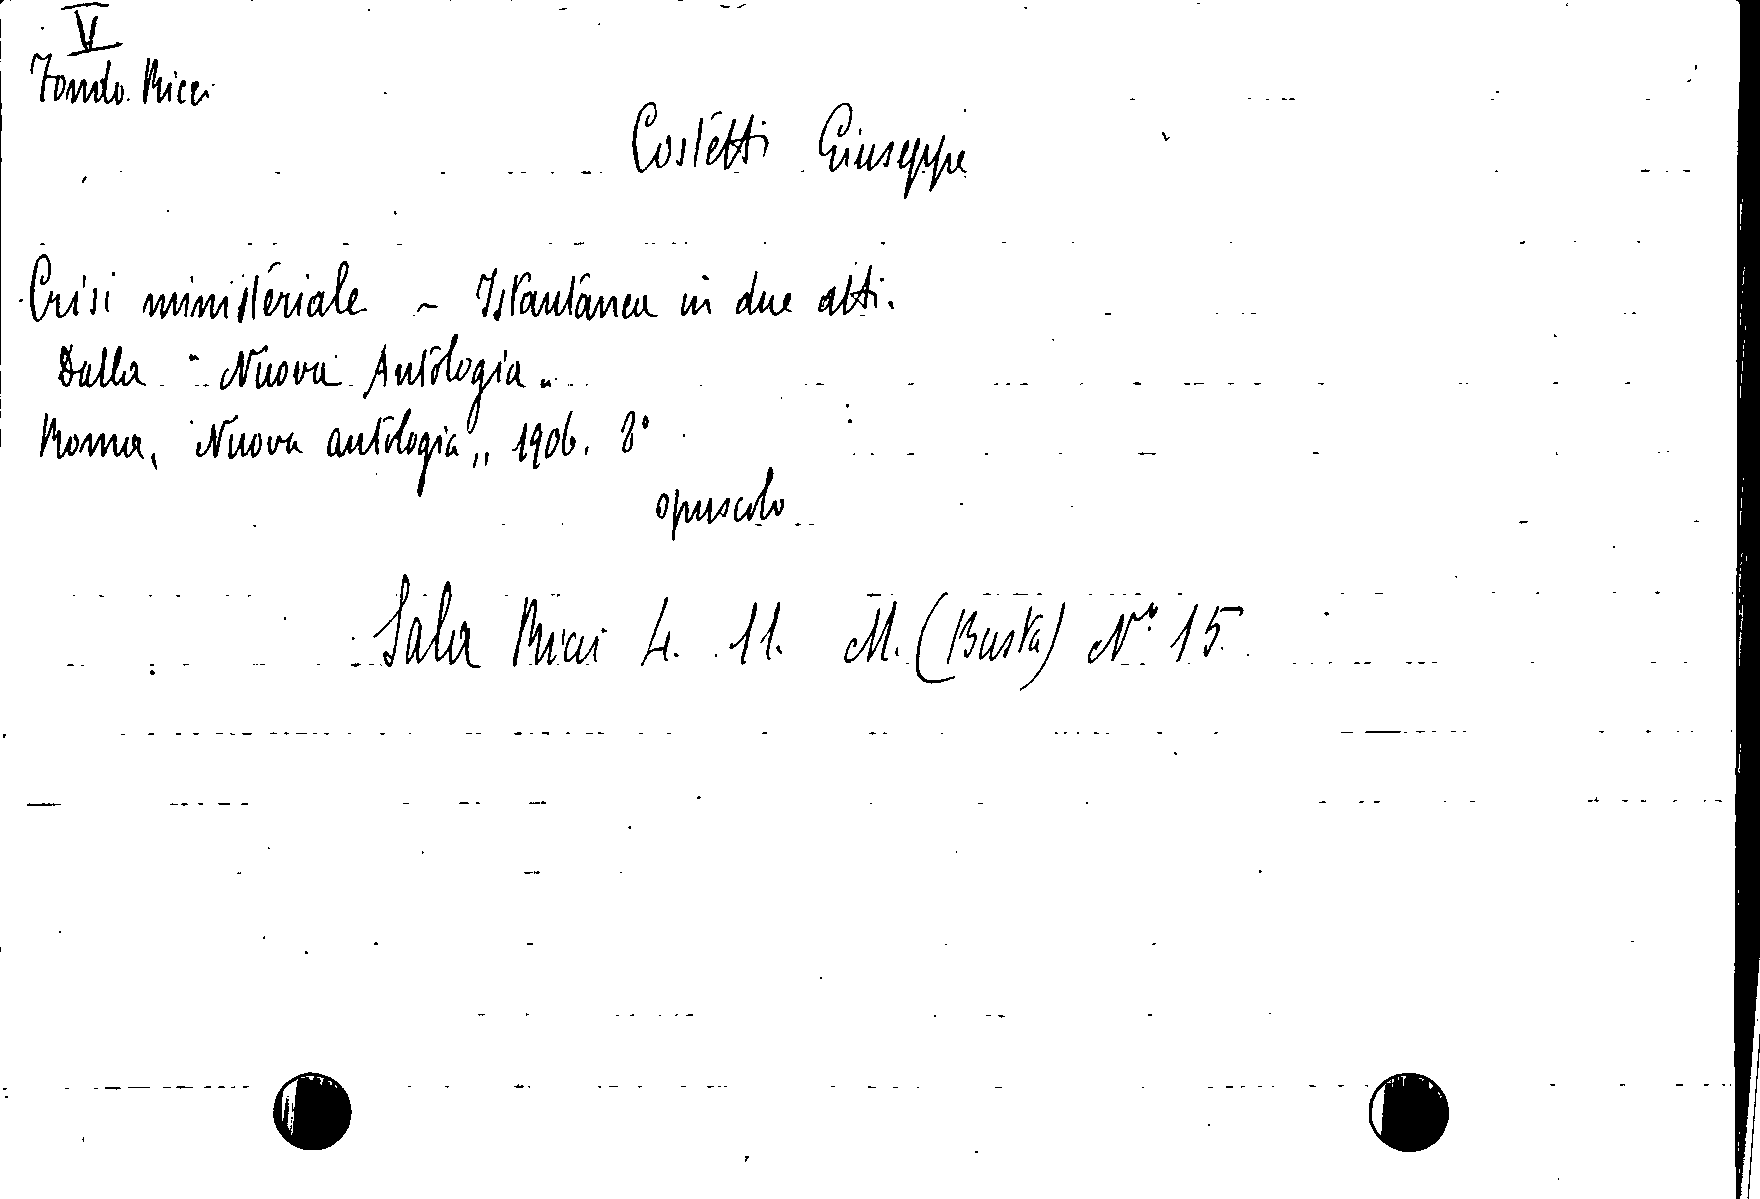 V
Fondo Ricci
Costetti Giuseppe
Crisi ministeriale - Istantanea in due atti.
Dalla "Nuova Antologia"
Roma, "Nuova antologia", 1906. 8°
opuscolo
Sala Ricci 4. 11. M. (Busta) N° 15